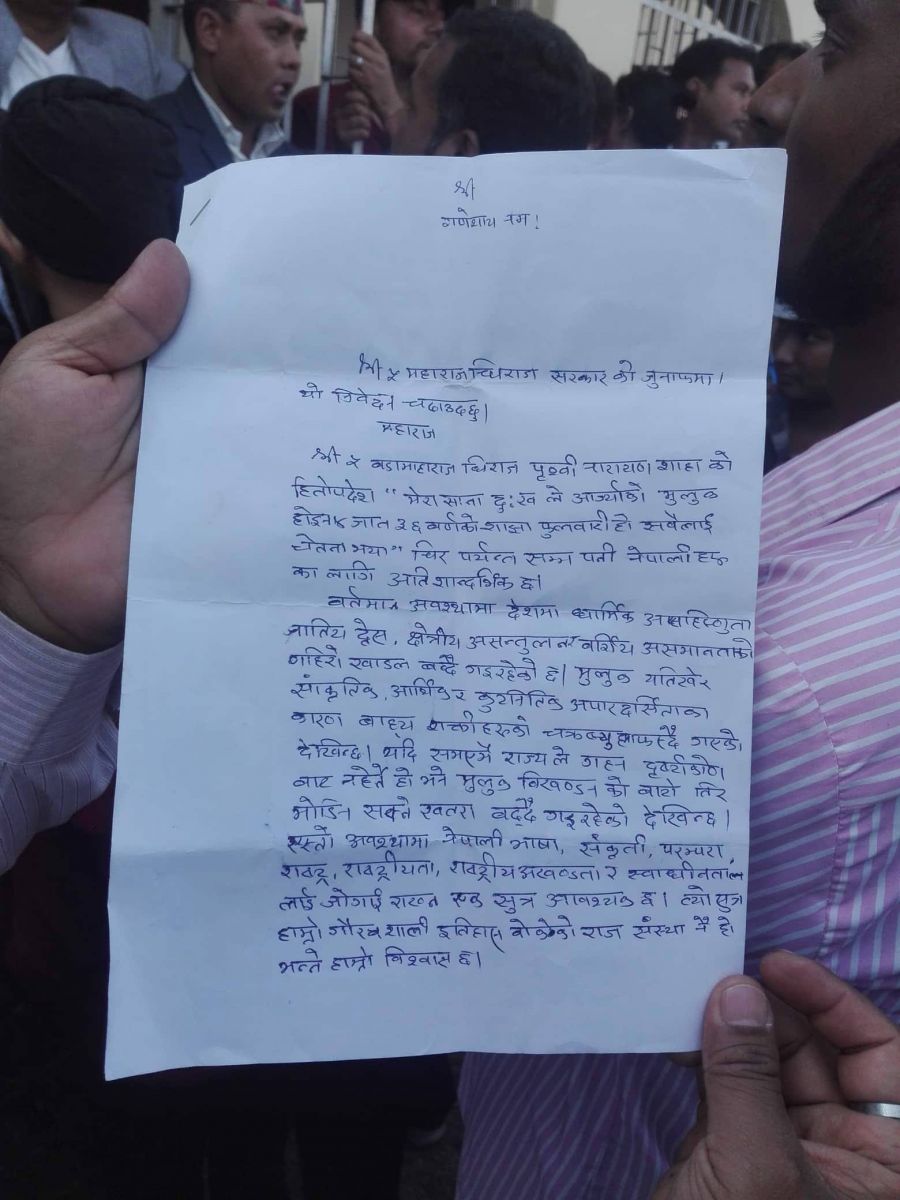 श्री
गणेशाय नम!
श्री ५ महाराजधिराज सरकार को जुनाफमा।
यो निवेदन चढाउदछु।
महाराज
श्री ५ बडामाहाराज धिराज पृथ्वी नारायण शाहा को
हितोपदेश "मेरा साना दुःख ले आर्ज्याको मुलुक
होइन ४ जात ३६ वर्णको साझा फुलवारी हो सबैलाई
चेतना भया" चिर पर्यन्त सम्म पनी नेपाली हरू
का लागि अति शान्दर्भिक छ।
वर्तमान अवश्थामा देशमा धार्मिक असहिष्णुता
जातिय द्वेस, क्षेत्रीय असन्तुलन र वर्गिय असमानताको
गहिरो खाडल बढ्दै गइरहेको छ। मुलुक यतिखेर
सांकृतिक, आर्थिक र कुटनितिक अपारदर्सिताका
कारण बाह्य शक्तीहरुको चक्रब्युहमा फस्दै गएको
देखिन्छ। यदि समएमै राज्य ले गहन दृष्टीकोण
बाट नहेर्ने हो भने मुलुक बिखण्डन को बाटो तिर
मोडिन सक्ने खतरा बढ्दै गइरहेको देखिन्छ।
यस्तो अवश्थामा नेपाली भाषा, संकृती, परम्परा,
राष्ट्र, राष्ट्रीयता, राष्ट्रीय अखण्डता र स्वाधीनता
लाई जोगाई राख्न एक सुत्र आवश्यक छ। त्यो सुत्र
हाम्रो गौरवशाली इतिहास बोकेको राज संस्था नै हो
भन्ने हाम्रो विश्वास छ।